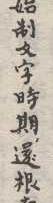 始制文字時期，還根